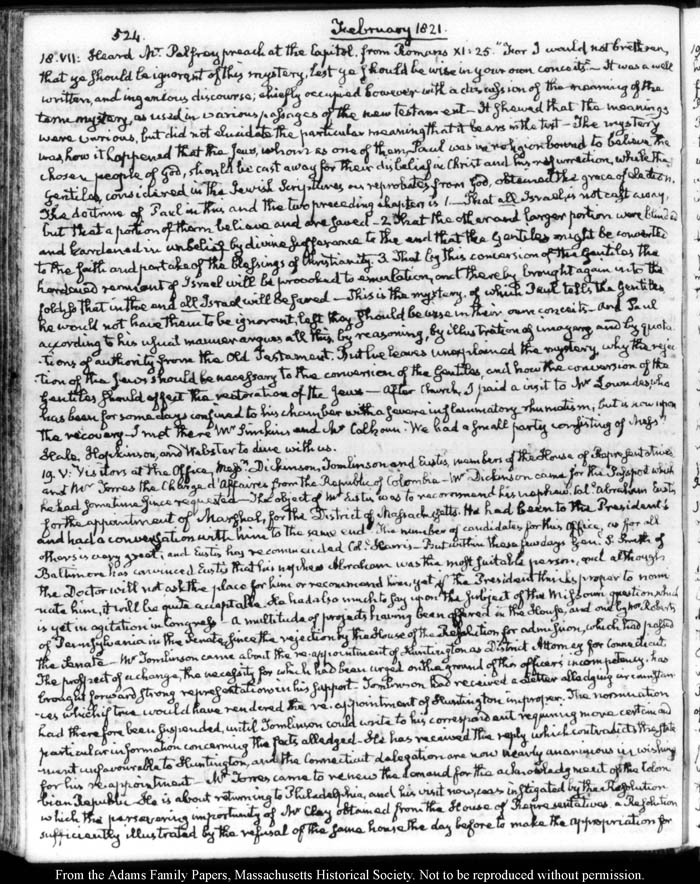 524.
February 1821.
18. VII: Heard Mr Palfrey preach at the Capitol, from Romans XI: 25. "For I would not brethren,
that ye should be ignorant of this mystery, lest ye should be wise in your own conceits"— It was a well
written, and ingenious discourse; chiefly occupied however with a discussion of the meaning of the
term mystery, as used in various passages of the new testament— It shewed that the meanings
were various, but did not elucidate the particular meaning that it bears in the text— The mystery
was how it happened that the Jews, whom as one of them, Paul was in religion bound to believe, the
chosen people of God, should be cast away for their disbelief in Christ and his resurrection, while the
Gentiles, considered in the Jewish Scriptures as reprobates from God, obtained the grace of election.
The doctrine of Paul in this and the two preceding chapters is 1.— That all Israel, is not cast away,
but that a portion of them believe and are saved— 2. That the other and larger portion were blinded
and hardened in unbelief by divine sufferance to the end that the Gentiles might be converted
to the faith and partake of the blessings of Christianity. 3. That by this conversion of the Gentiles the
hardened remnant of Israel will be provoked to emulation, and thereby brought again into the
fold, so that in the end all Israel will be saved— This is the mystery, of which Paul tells the Gentiles
he would not have them to be ignorant, lest they should be wise in their own conceits— And Paul
according to his usual manner argues all this, by reasoning, by illustration of imagery and by quota-
tions of authority from the Old Testament. But he leaves unexplained the mystery, why the rejec-
tion of the Jews should be necessary to the conversion of the Gentiles, and how the conversion of the
Gentiles should effect the restoration of the Jews— After Church, I paid a visit to Mr Lowndes, who
has been for some days confined to his chamber with a severe inflammatory rhumatism, but is now upon
the recovery— I met there Mr Simkins and Mr Calhoun— We had a small party consisting of Messrs
Hale, Hopkinson, and Webster to dine with us.
19. V: Visitors at the Office, Messrs Dickinson, Tomlinson and Eustis, members of the House of Representatives
and Mr Torres the Chargé d'Affaires from the Republic of Colombia— Mr Dickinson came for the Passport which
he had some time since requested— The object of Mr Eustis was to recommend his nephew Col. Abraham Eustis
for the appointment of Marshal, for the District of Massachusetts. He had been to the President's
and had a conversation with him to the same end. The number of candidates for this Office, as for all
others is very great; and Eustis has recommended Col. Harris— But within these few days Genl S. Smith of
Baltimore has convinced Eustis that his nephew Abraham was the most suitable person, and although
the Doctor will not ask the place for him or recommend him, yet if the President thinks proper to nomi-
nate him, it will be quite acceptable. He had also much to say upon the subject of the Missouri question, which
is yet in agitation in Congress— a multitude of projects having been offered in the House, and one by Mr Roberts
of Pennsylvania in the Senate, since the rejection by the House of the Resolution for admission, which had passed
the Senate— Mr Tomlinson came about the re-appointment of Huntington as District Attorney for Connecticut.
The prospect of a change, the necessity for which had been urged on the ground of this officer's incompetency, has
brought forward strong representations in his support— Tomlinson had received a letter alledging circumstan-
ces which if true would have rendered the re-appointment of Huntington improper. The nomination
had therefore been suspended, until Tomlinson could write to his correspondent requiring more certain and
particular information concerning the facts alledged— He has received the reply which contradicts the state-
ment unfavourable to Huntington, and the Connecticut delegation are now nearly unanimous in wishing
for his re-appointment— Mr Torres came to renew the demand for the acknowledgment of the Colom-
bian Republic— He is about returning to Philadelphia, and his visit now, was instigated by the Resolution
which the persevering importunity of Mr Clay obtained from the House of Representatives. a Resolution
sufficiently illustrated by the refusal of the same house the day before to make the appropriation for
From the Adams Family Papers, Massachusetts Historical Society. Not to be reproduced without permission.